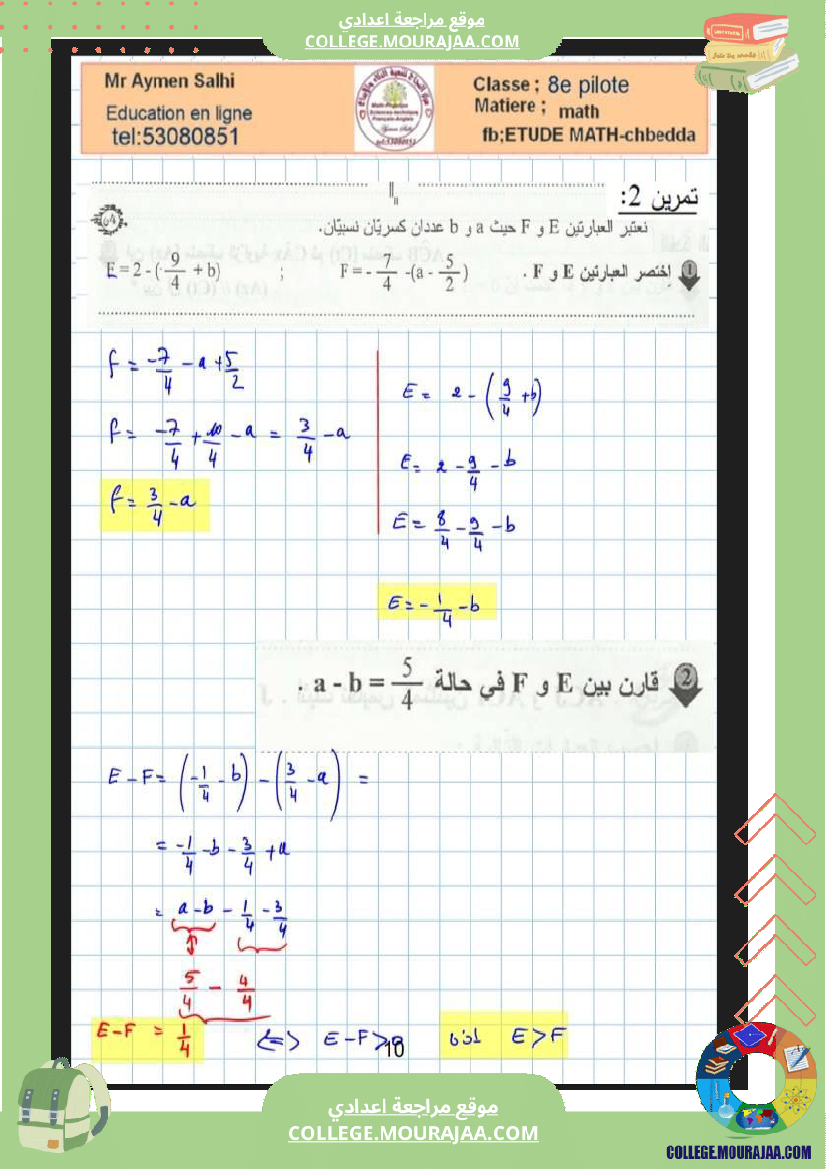 موقع مراجعة اعدادي
COLLEGE.MOURAJAA.COM
Mr Aymen Salhi
Education en ligne
tel:53080851
Classe ; 8e pilote
Matiere ; math
fb;ETUDE MATH-chbedda
تمرين 2:
نعتبر العبارتين E و F حيث a و b عددان كسريّان نسبيّان.
1 اختصر العبارتين E و F .
F = - 7/4 -(a - 5/2) ; E = 2 - (9/4 + b)
f = -7/4 - a + 5/2
f = -7/4 + 10/4 - a = 3/4 - a
f = 3/4 - a
E = 2 - (9/4 + b)
E = 2 - 9/4 - b
E = 8/4 - 9/4 - b
E = - 1/4 - b
2 قارن بين E و F في حالة a - b = 5/4 .
E - F = (-1/4 - b) - (3/4 - a) =
= -1/4 - b - 3/4 + a
= a - b - 1/4 - 3/4
5/4 - 4/4
E - F = 1/4 <=> E - F > 0 اذن E > F
10
موقع مراجعة اعدادي
COLLEGE.MOURAJAA.COM
COLLEGE.MOURAJAA.COM